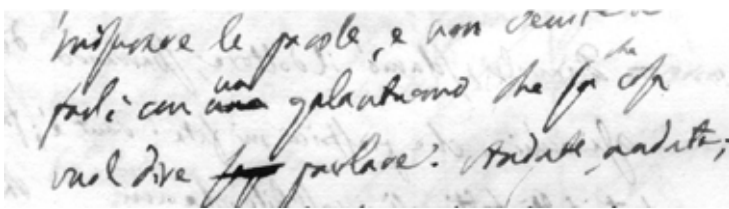 misurare le parole, e non
parli con un galantuomo che sa che cosa
vuol dire parlare. Andate, andate;